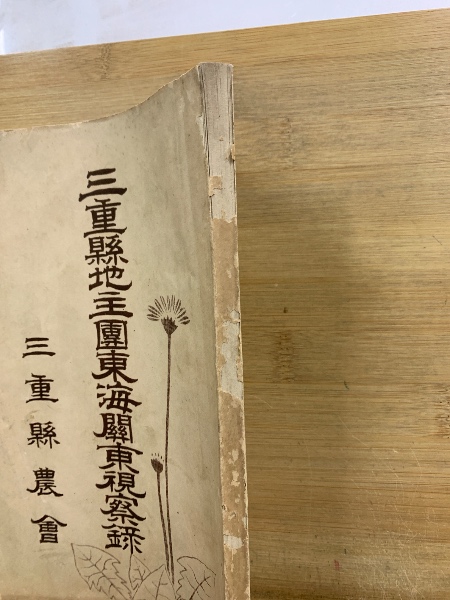 三重縣地主團東海關東視察錄
三重縣農會